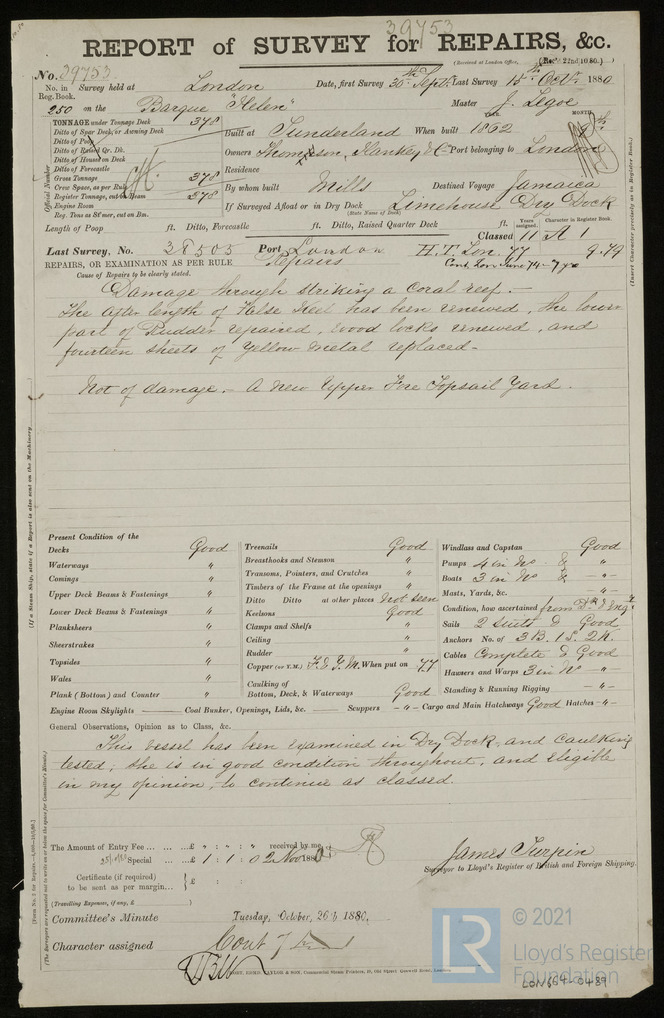 39753
REPORT of SURVEY for REPAIRS, &c.
(Received at London Office, (Recd 22nd 10 80.)
No. 39753
No. in Survey held at London Date, first Survey 30th Sept. Last Survey 15th Octr 1880
Reg. Book.
250 on the Barque "Helen" Master J. Legoe
TONNAGE under Tonnage Deck 378
Ditto of Spar Deck, or Awning Deck
Ditto of Poop
Ditto of Raised Qr. Dk.
Ditto of House on Deck
Ditto of Forecastle
Gross Tonnage 378
Crew Space, as per Rule
Register Tonnage, cut on Beam 378
Engine Room
Reg. Tons as St'mer, cut on Bm.
Official Number
Built at Sunderland When built 1862
MONTH
Owners Thompson, Hankey & C. Port belonging to London
Residence
By whom built Mills Destined Voyage Jamaica
If Surveyed Afloat or in Dry Dock Limehouse Dry Dock
(State Name of Dock)
Length of Poop ft. Ditto, Forecastle ft. Ditto, Raised Quarter Deck ft. Years assigned. Character in Register Book.
Classed 11 A 1
Last Survey, No. 38505 Port London H.T. Lon. 77 9.79
Repairs Cont. Lon. June 74 - 7 yrs
REPAIRS, OR EXAMINATION AS PER RULE
Cause of Repairs to be clearly stated.
Damage through striking a Coral reef. -
The after length of False Keel has been renewed, the lower
part of Rudder repaired, wood locks renewed, and
fourteen sheets of Yellow Metal replaced -
Not of damage. - A New Upper Fore Topsail Yard.
(Insert Character precisely as in Register Book.)
(If a Steam Ship, state if a Report is also sent on the Machinery
Present Condition of the
Decks Good
Waterways "
Comings "
Upper Deck Beams & Fastenings "
Lower Deck Beams & Fastenings "
Planksheers "
Sheerstrakes "
Topsides "
Wales "
Plank (Bottom) and Counter "
Treenails Good
Breasthooks and Stemson "
Transoms, Pointers, and Crutches "
Timbers of the Frame at the openings "
Ditto Ditto at other places Not seen
Keelsons Good
Clamps and Shelfs "
Ceiling "
Rudder "
Copper (or Y.M.) F. & Y.M. When put on 77
Caulking of
Bottom, Deck, & Waterways Good
Windlass and Capstan Good
Pumps 4 in No & "
Boats 3 in No & - " -
Masts, Yards, &c. - " -
Condition, how ascertained from Dk & Engr
Sails 2 Suits & Good
Anchors No. of 3 B. 1 S. 2 K.
Cables Complete & Good
Hawsers and Warps 3 in No - " -
Standing & Running Rigging - " -
Engine Room Skylights — Coal Bunker, Openings, Lids, &c. — Scuppers - " - Cargo and Main Hatchways Good Hatches - " -
General Observations, Opinion as to Class, &c.
This vessel has been examined in Dry Dock, and Caulking
tested; she is in good condition throughout, and eligible
in my opinion, to continue as classed.
The Amount of Entry Fee ... ... ... £ " : " : " received by me,
Special ... ... £ 1 : 1 : 0 2 Nov 1880
Certificate (if required) £ : :
to be sent as per margin...
(Travelling Expenses, if any, £ )
James Turpin
Surveyor to Lloyd's Register of British and Foreign Shipping.
Committee's Minute Tuesday, October, 26th 1880.
Character assigned
(The Surveyors are requested not to write on or below the space for Committee's Minute.)
© 2021
LR
Lloyd's Register
Foundation
LON664-0439